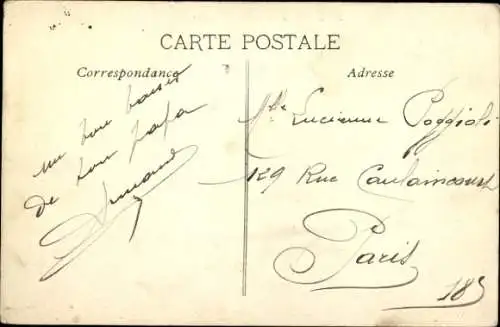 CARTE POSTALE
Correspondance
un bon baiser
de ton papa
Armand
Adresse
Mlle Lucienne Poggioli
129 Rue Caulaincourt
Paris
18e